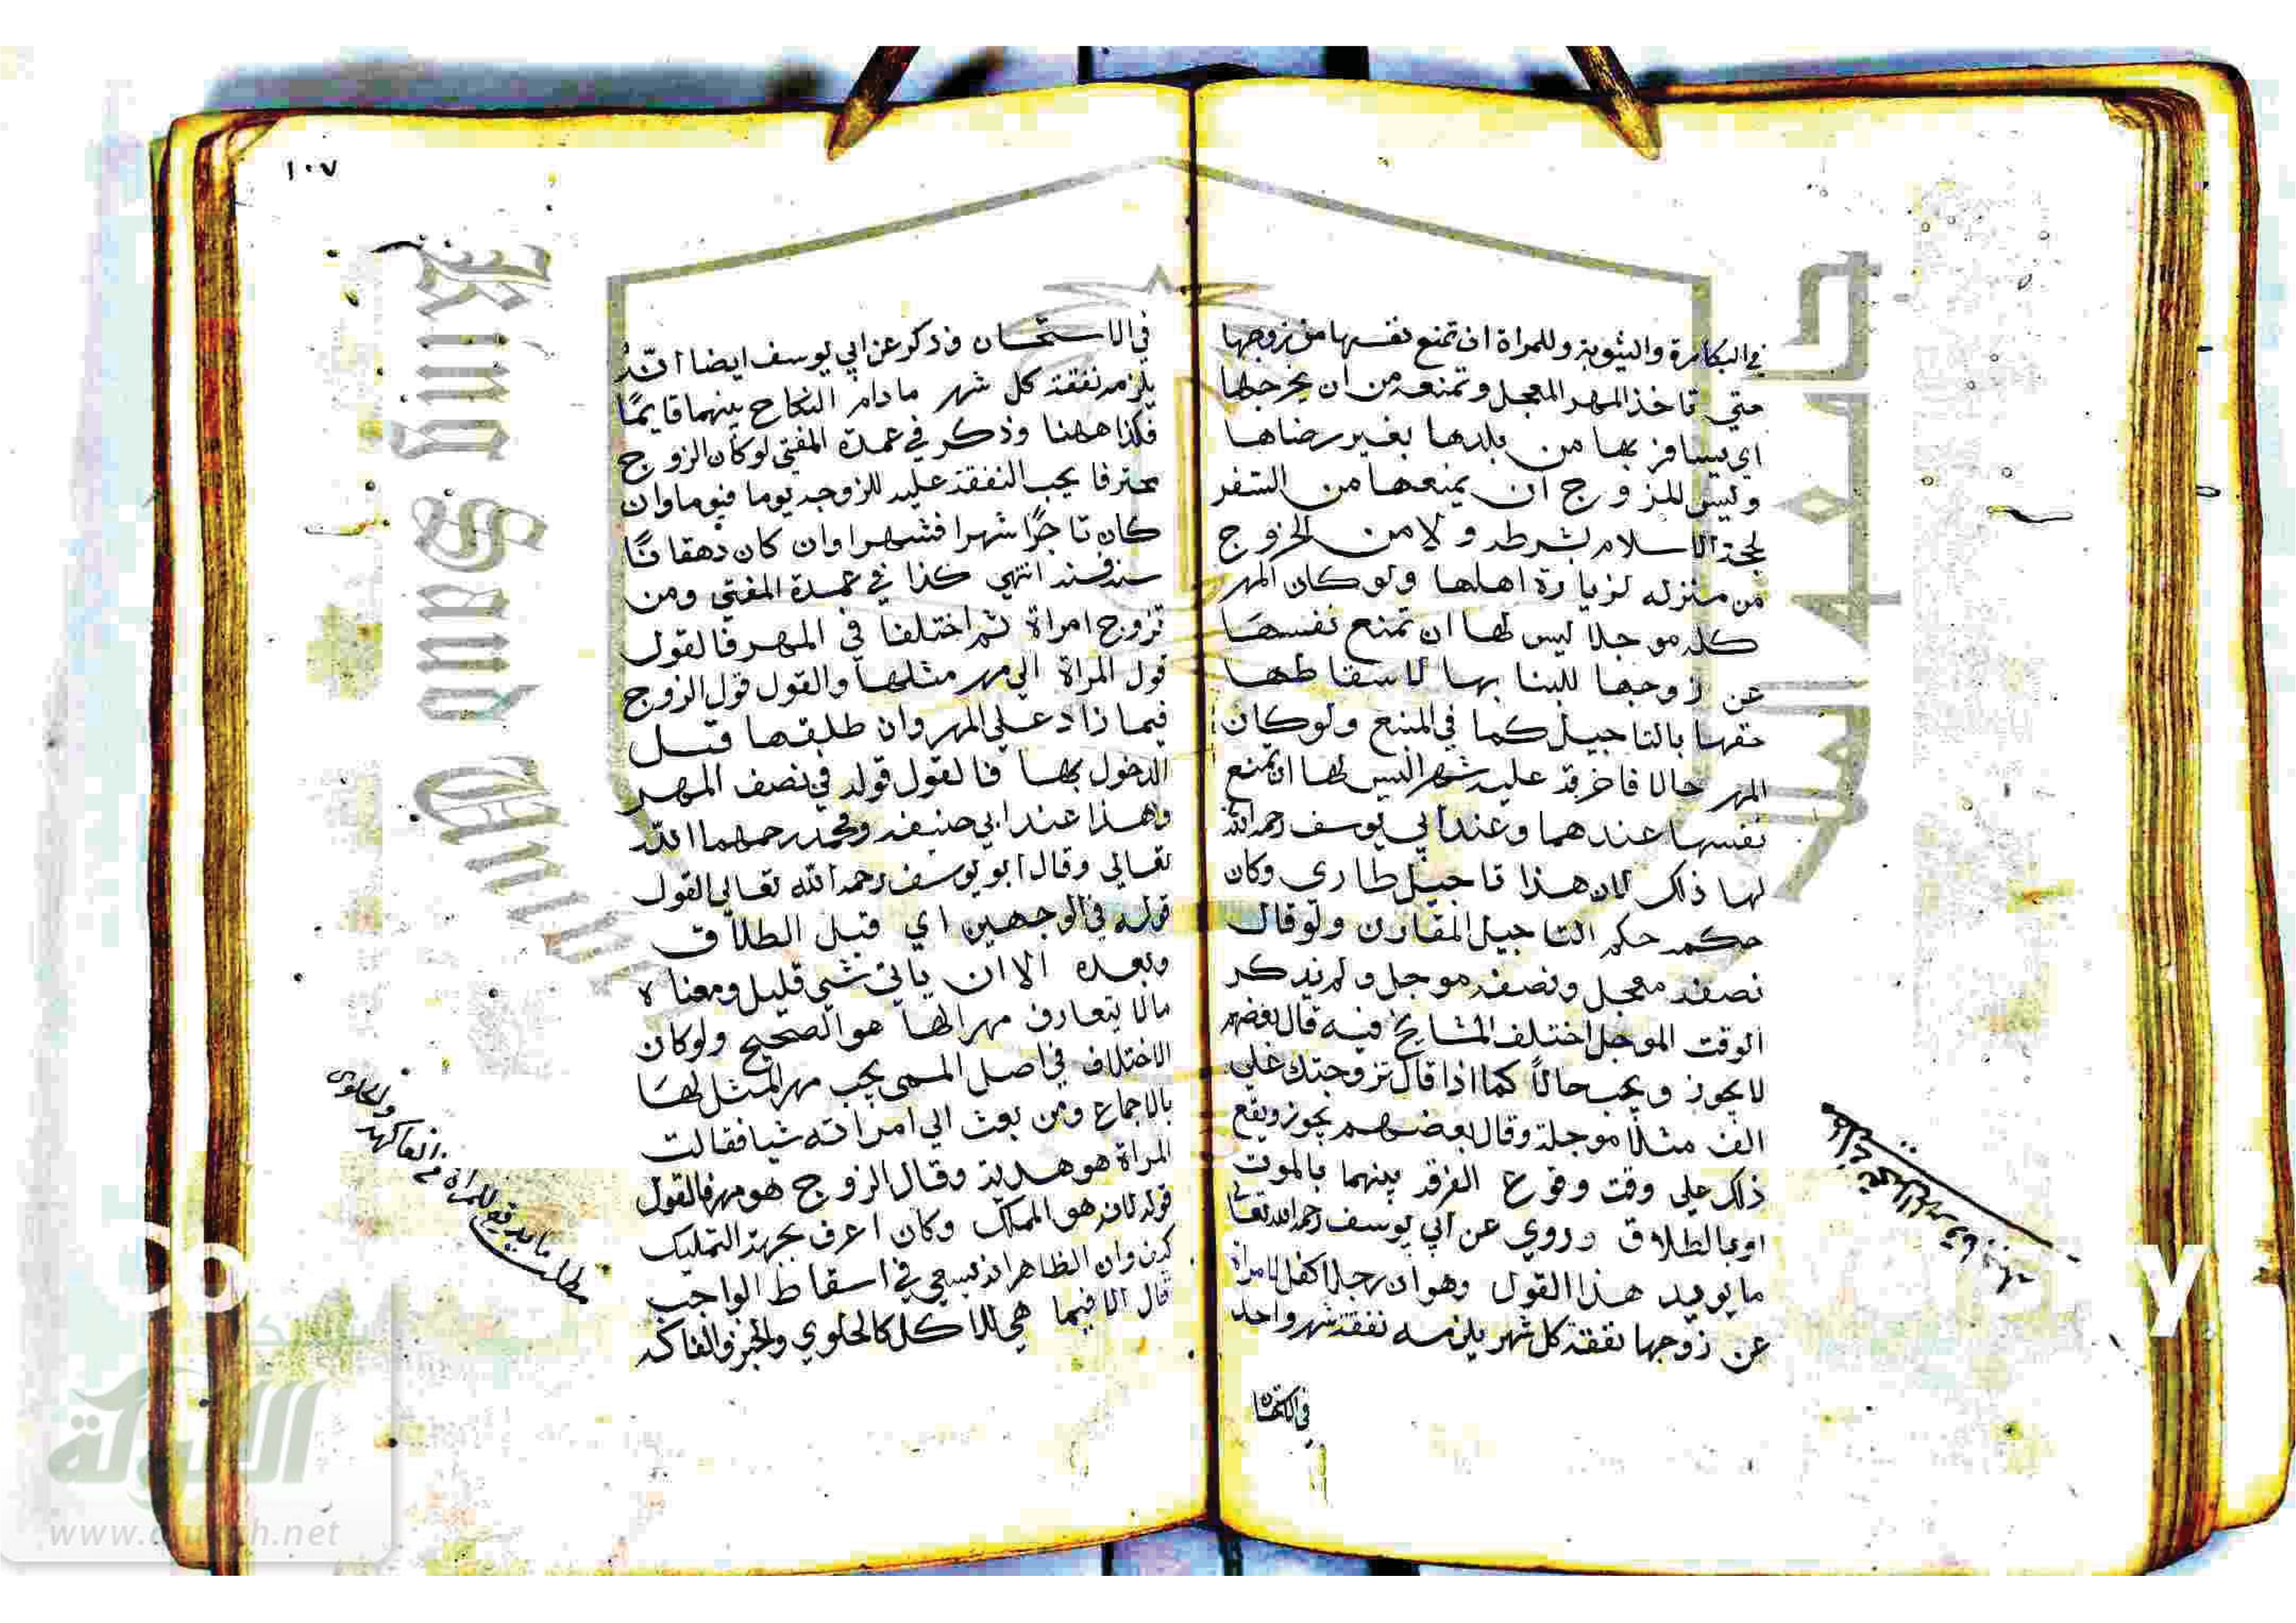 في البكارة والثيوبة وللمراة ان تمنع نفسها من زوجها
حتى تاخذ المهر المعجل وتمنعه من ان يخرجها
اي يسافر بها من بلدها بغير رضاها
وليس للزوج ان يمنعها من السفر
لحجة الاسلام بشرطه ولا من الخروج
من منزله لزيارة اهلها ولو كان المهر
كله موجلا ليس لها ان تمنع نفسها
عن زوجها للبنا بها لاسقاطها
حقها بالتاجيل كما في المنبع ولو كان
المهر حالا فاخرته عليه شهرا ليس لها ان تمنع
نفسها عندهما وعند ابي يوسف رحمه الله
لها ذلك لان هذا تاجيل طاري وكان
حكمه حكم التاجيل المقارن ولو قال
نصفه معجل ونصفه موجل ولم يذكر
الوقت الموجل اختلف المشايخ فيه قال بعضهم
لا يجوز ويجب حالاً كما اذا قال تزوجتك علي
الف مثلا موجلة وقال بعضهم يجوز ويقع
ذلك علي وقت وقوع الفرقه بينهما بالموت
او بالطلاق وروي عن ابي يوسف رحمه الله تعالى
ما يويد هذا القول وهو ان رجلا كفل لامراة
عن زوجها نفقة كل شهر يلزمه نفقة شهر واحد
في الاستحسان
١٠٧
في الاستحسان وذكر عن ابي يوسف ايضا انّهُ
يلزمه نفقة كل شهر ما دام النكاح بينهما قايمًا
فكذا ههنا وذكر في عمدة المفتي لو كان الزوج
محترفا يجب النفقة عليه للزوجه يوما فيوما وان
كان تاجرًا شهرا فشهرا وان كان دهقانًا
سنه فسنه انتهي كذا في عمدة المفتي ومن
تزوج امراة ثم اختلفا في المهر فالقول
قول المراة الي مهر مثلها والقول قول الزوج
فيما زاد علي المهر وان طلقها قبل
الدخول بها فالقول قوله في نصف المهر
وهذا عند ابي حنيفه ومحمد رحمهما الله
تعالي وقال ابو يوسف رحمه الله تعالى القول
قوله في الوجهين اي قبل الطلاق
وبعده الا ان ياتي بشي قليل ومعناه
مالا يتعارف مهرا لها هو الصحيح ولو كان
الاختلاف في اصل المسمى يجب مهر المثل لها
بالاجماع ومن بعث الي امراته شيا فقالت
المراة هو هدية وقال الزوج هو مهر فالقول
قوله لانه هو المملك وكان اعرف بجهة التمليك
كيف وان الظاهر انه يسعي في اسقاط الواجب
قال الا فيما هي للاكل كالحلوي والخبز والفاكه
مطلب ما يدفع للمراة من الفاكهه والحلوى